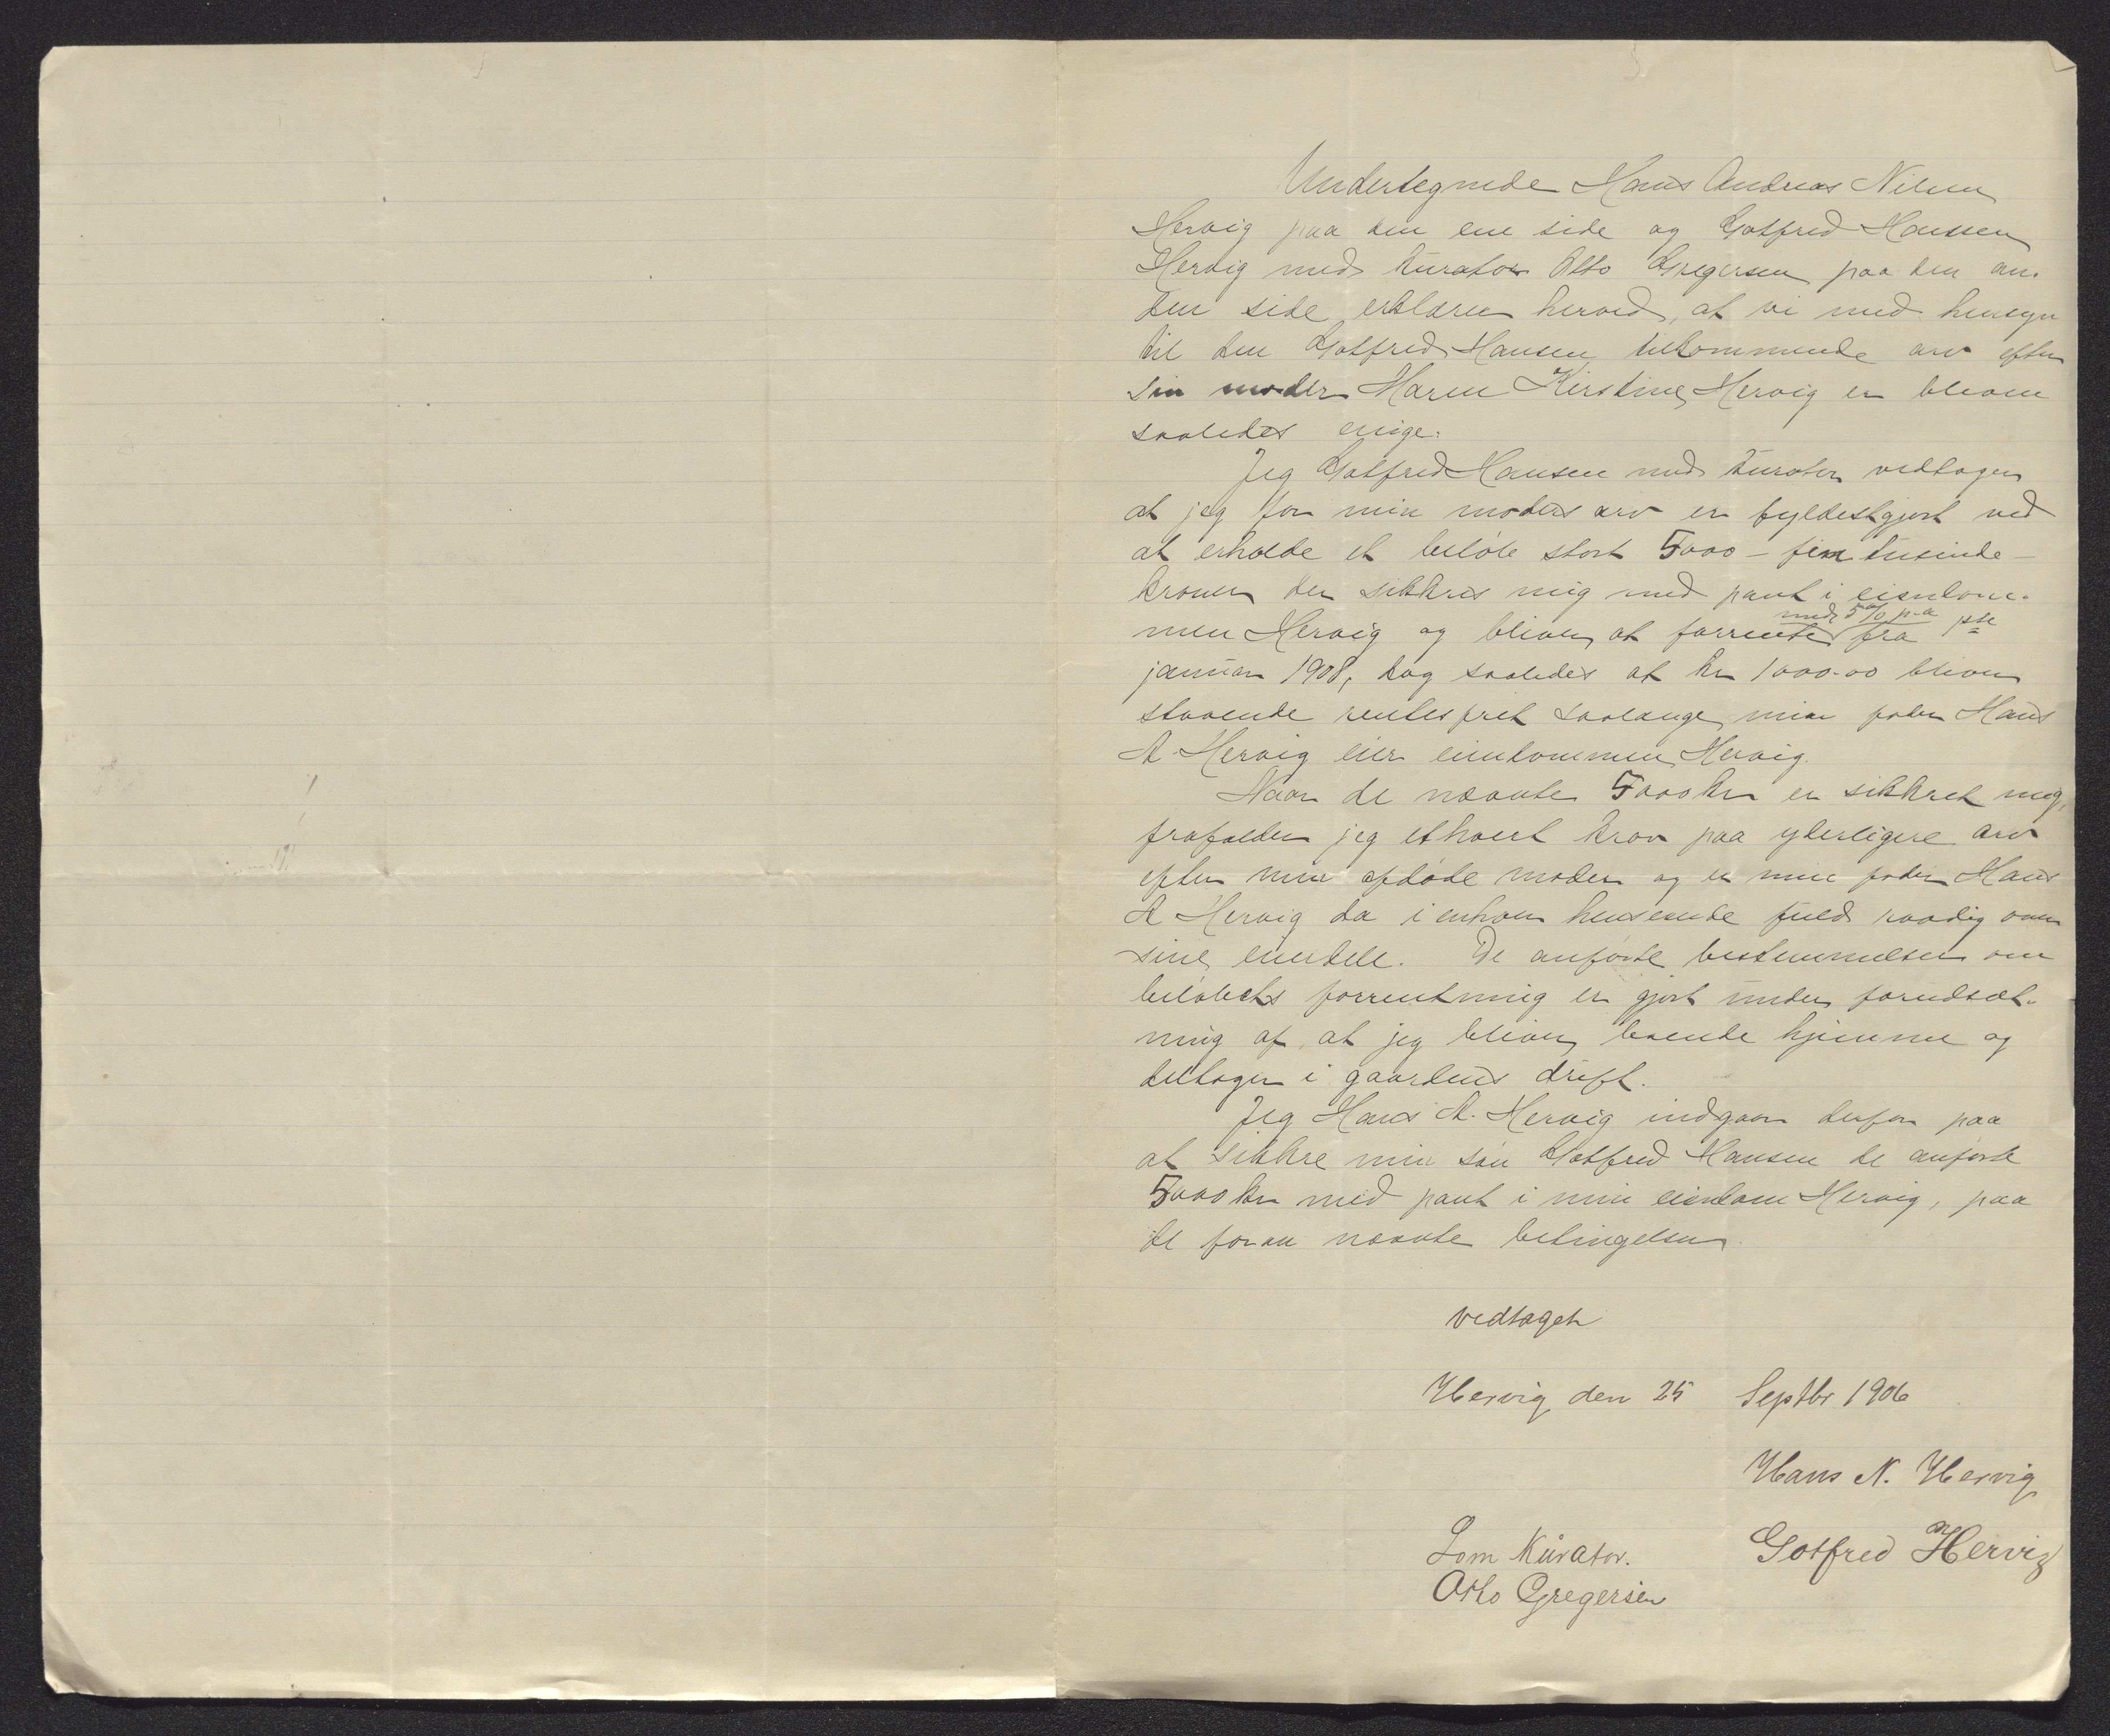 Undertegnede Hans Andreas Nilsen
Hervig paa den ene side og Gotfred Hanssen
Hervig med kurator Otto Gregersen paa den an-
den side erklærer herved, at vi med hensyn
til den Gotfred Hansen tilkommende arv efter
sin moder Maren Kirstine Hervig er bleven
saaledes enige:
Jeg Gotfred Hansen med kurator vedtager
at jeg for min moders arv er fyldestgjort ved
at erholde et beløb stort 5000 – fem tusinde –
kroner der sikkres mig med pant i eiendom-
men Hervig og bliver at forrente med 5 % p.a fra 1ste
januar 1908, dog saaledes at kr 1000.00 bliver
staaende rentefrit saalænge min fader Hans
A Hervig eier eiendommen Hervig.
Naar de nævnte 5000 kr er sikkret mig,
frafalder jeg ethvert krav paa yderligere arv
efter min afdøde moder og er min fader Hans
A Hervig da i enhver henseende fuld raadig over
sine eiendele. De anførte bestemmelser om
beløbets forrentning er gjort under forudsæt-
ning af at jeg bliver boende hjemme og
deltager i gaardens drift.
Jeg Hans A. Hervig indgaar derfor paa
at sikkre min søn Gotfred Hansen de anførte
5000 kr med pant i min eiendom Hervig, paa
de foran nævnte betingelser.
vedtaget
Hervig den 25 Septbr 1906
Hans N. Hervig
Som Kurator. Gotfred Hervig
Otto Gregersen